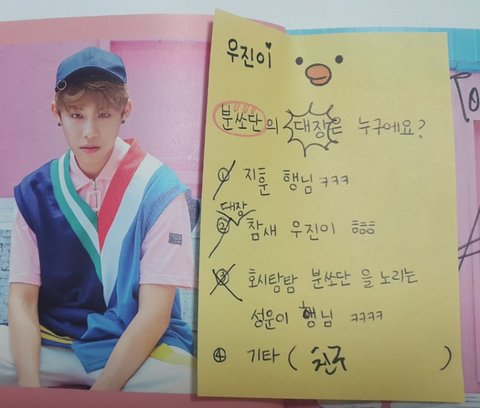 우진이
분쏘단의 대장은 누구에요?
① 지훈 행님 ㅋㅋㅋ
대장
② 참새 우진이 ㅎㅎㅎ
③ 호시탐탐 분쏘단을 노리는
성운이 행님 ㅋㅋㅋㅋ
④ 기타 ( 친구 )
To